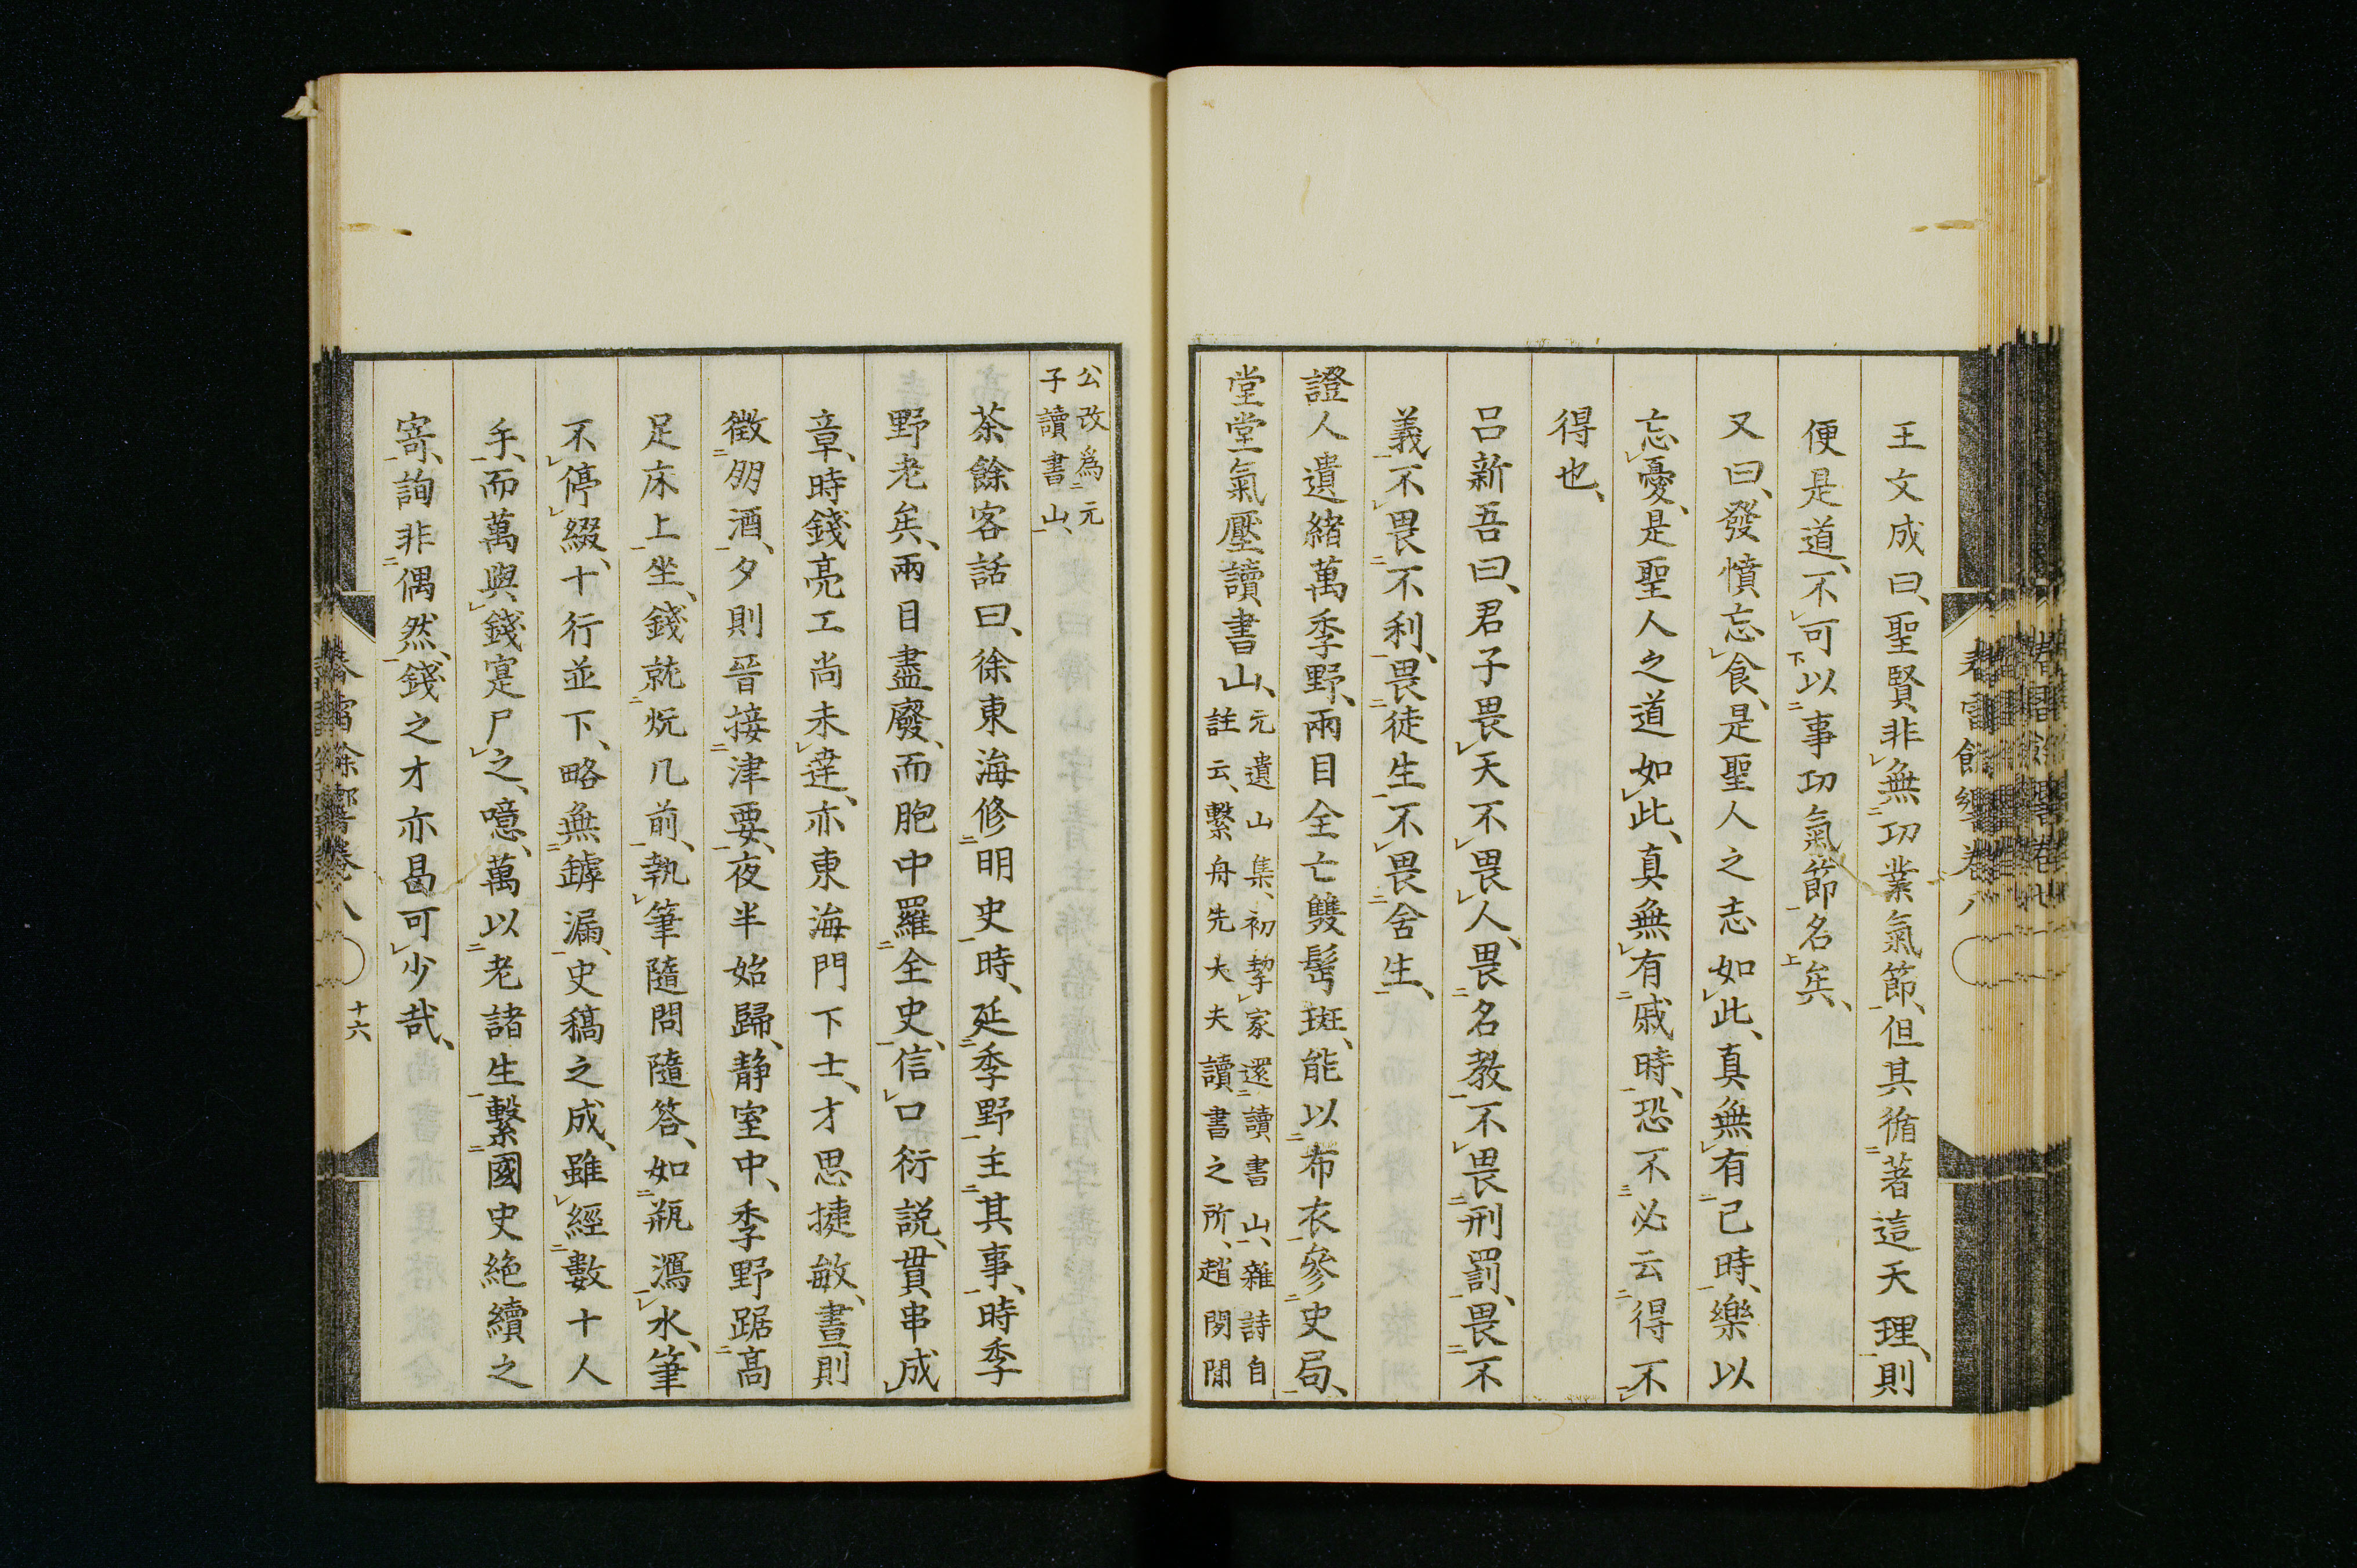 王文成曰、聖賢非無功業氣節、但其循著這天理、則
便是道、不可以事功氣節名矣、
又曰、發憤忘食、是聖人之志如此、真無有已時、樂以
忘憂、是聖人之道如此、真無有戚時、恐不必云得不
得也、
呂新吾曰、君子畏天不畏人、畏名教不畏刑罰、畏不
義不畏不利、畏徒生不畏舍生、
證人遺緒萬季野、兩目全亡雙髩斑、能以布衣參史局、
堂堂氣壓讀書山、
元遺山集、初挈家還讀書山、雜詩自
註云、繫舟先大夫讀書之所、趙閑閑
公改爲元
子讀書山、
茶餘客話曰、徐東海修明史時、延季野主其事、時季
野老矣、兩目盡廢、而胞中羅全史、信口衍説、貫串成
章、時錢亮工尚未達、亦東海門下士、才思捷敏、晝則
徵朋酒、夕則晉接津要、夜半始歸、静室中、季野踞高
足床上坐、錢就炕几前、執筆隨問隨答、如瓶瀉水、筆
不停綴、十行並下、略無罅漏、史稿之成、雖經數十人
手、而萬與錢寔尸之、噫、萬以老諸生繫國史絶續之
寄、詢非偶然、錢之才亦曷可少哉、
春雷餘響卷八
十六